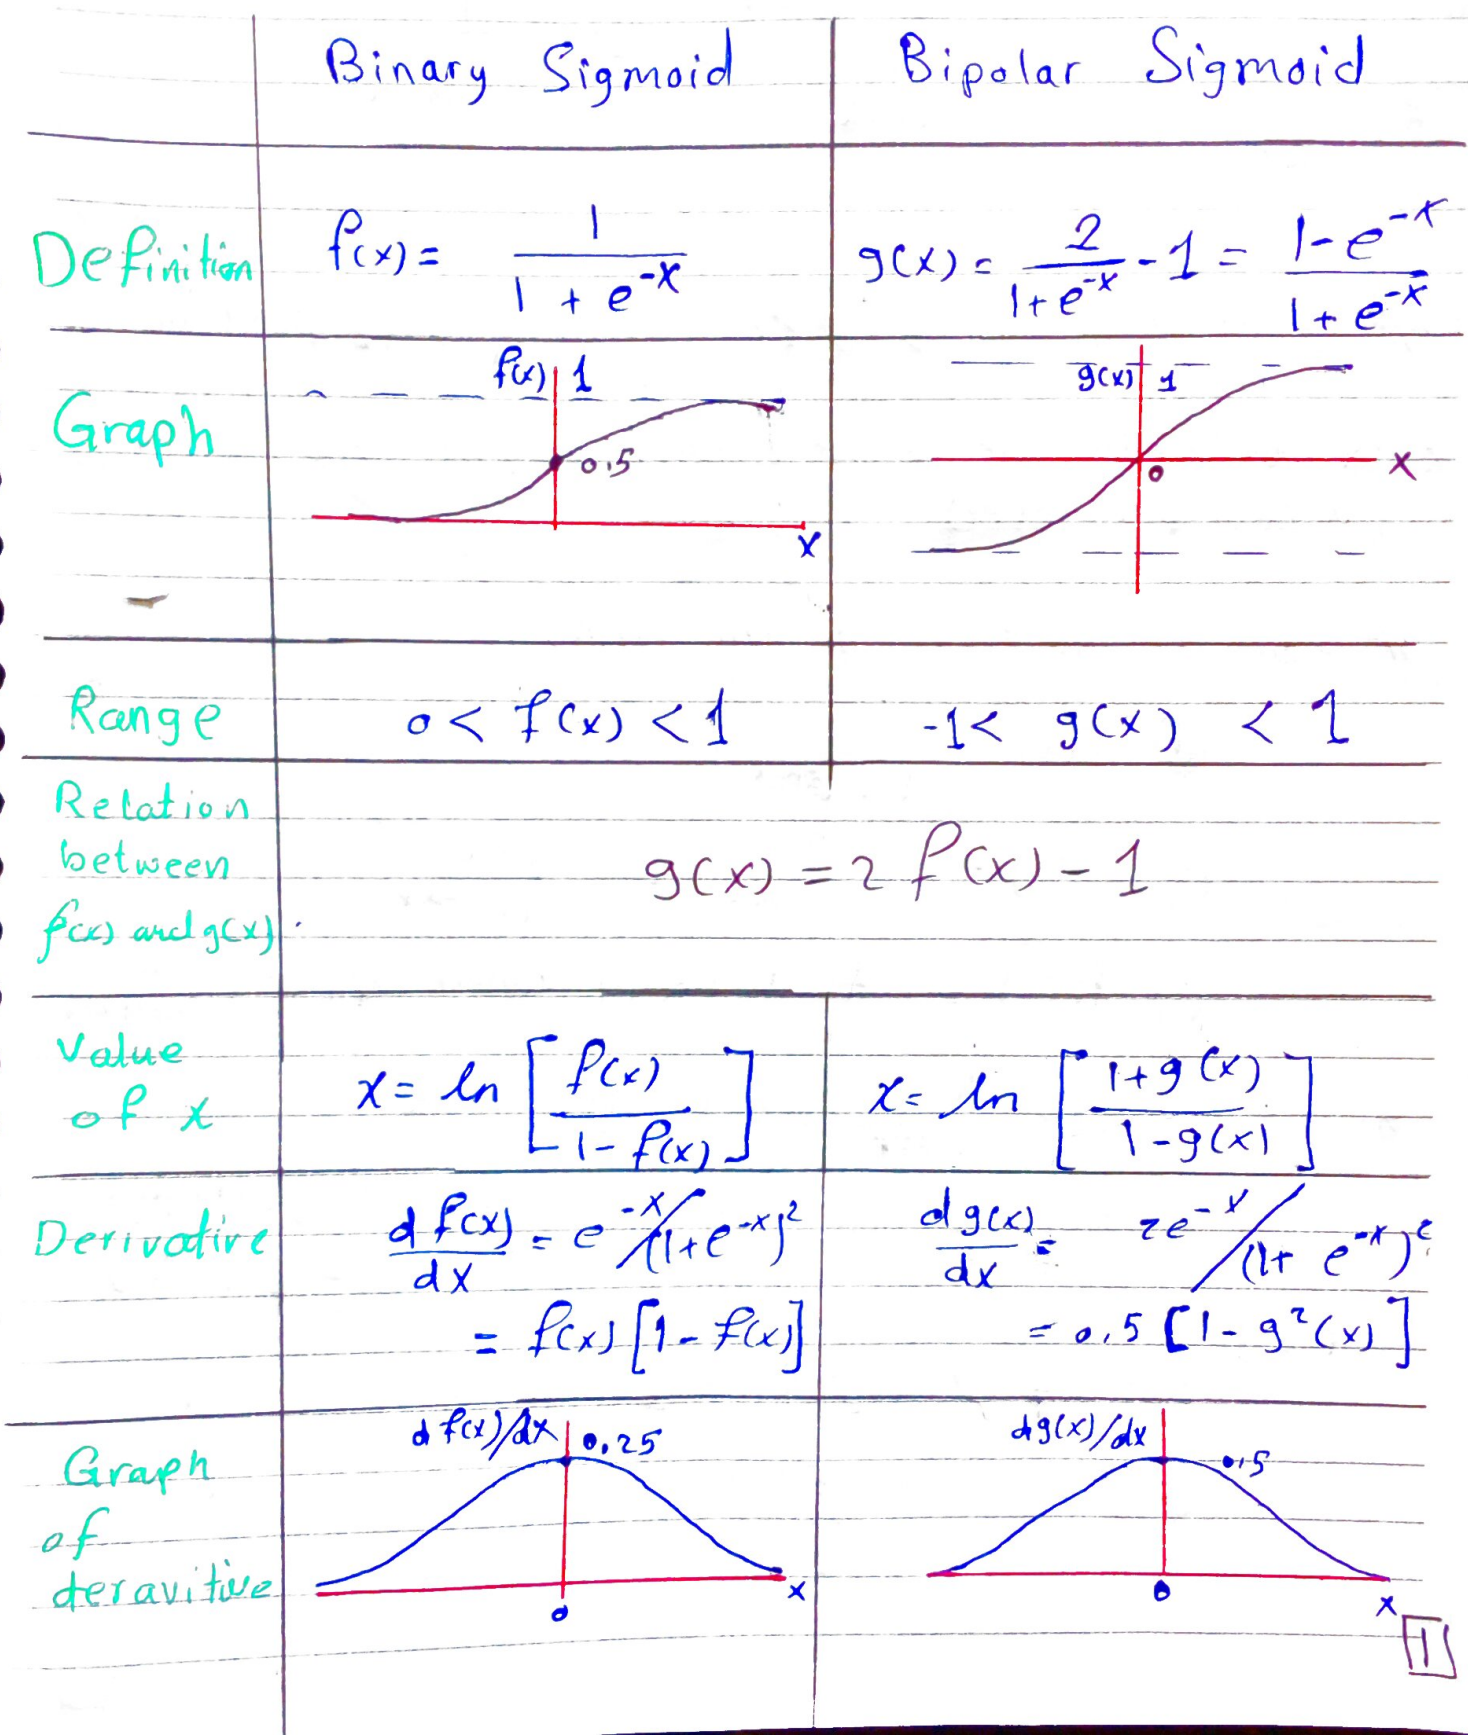 Binary Sigmoid Bipolar Sigmoid
Definition f(x) = 1 / (1 + e^-x) g(x) = 2 / (1 + e^-x) - 1 = (1 - e^-x) / (1 + e^-x)
Graph
f(x) 1
0.5
x
g(x) 1
0
x
Range 0 < f(x) < 1 -1 < g(x) < 1
Relation
between
f(x) and g(x)
g(x) = 2 f(x) - 1
Value
of x
x = ln [ f(x) / (1 - f(x)) ] x = ln [ (1 + g(x)) / (1 - g(x)) ]
Derivative d f(x) / dx = e^-x / (1 + e^-x)^2 d g(x) / dx = 2e^-x / (1 + e^-x)^2
= f(x) [1 - f(x)] = 0.5 [1 - g^2(x)]
Graph
of
deravitive
d f(x)/dx 0.25
0
x
dg(x)/dx
0.5
0
x
1